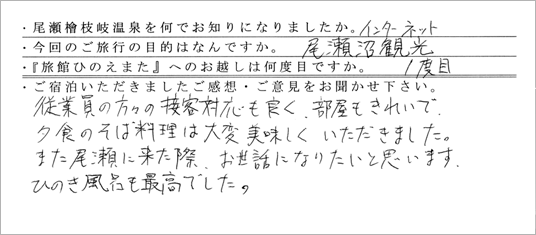 ・尾瀬檜枝岐温泉を何でお知りになりましたか。インターネット
・今回のご旅行の目的はなんですか。 尾瀬沼観光
・『旅館ひのえまた』へのお越しは何度目ですか。 1度目
・ご宿泊いただきましたご感想・ご意見をお聞かせ下さい。
従業員の方々の接客対応も良く、部屋もきれいで、
夕食のそば料理は大変美味しくいただきました。
また尾瀬に来た際、お世話になりたいと思います。
ひのき風呂も最高でした。